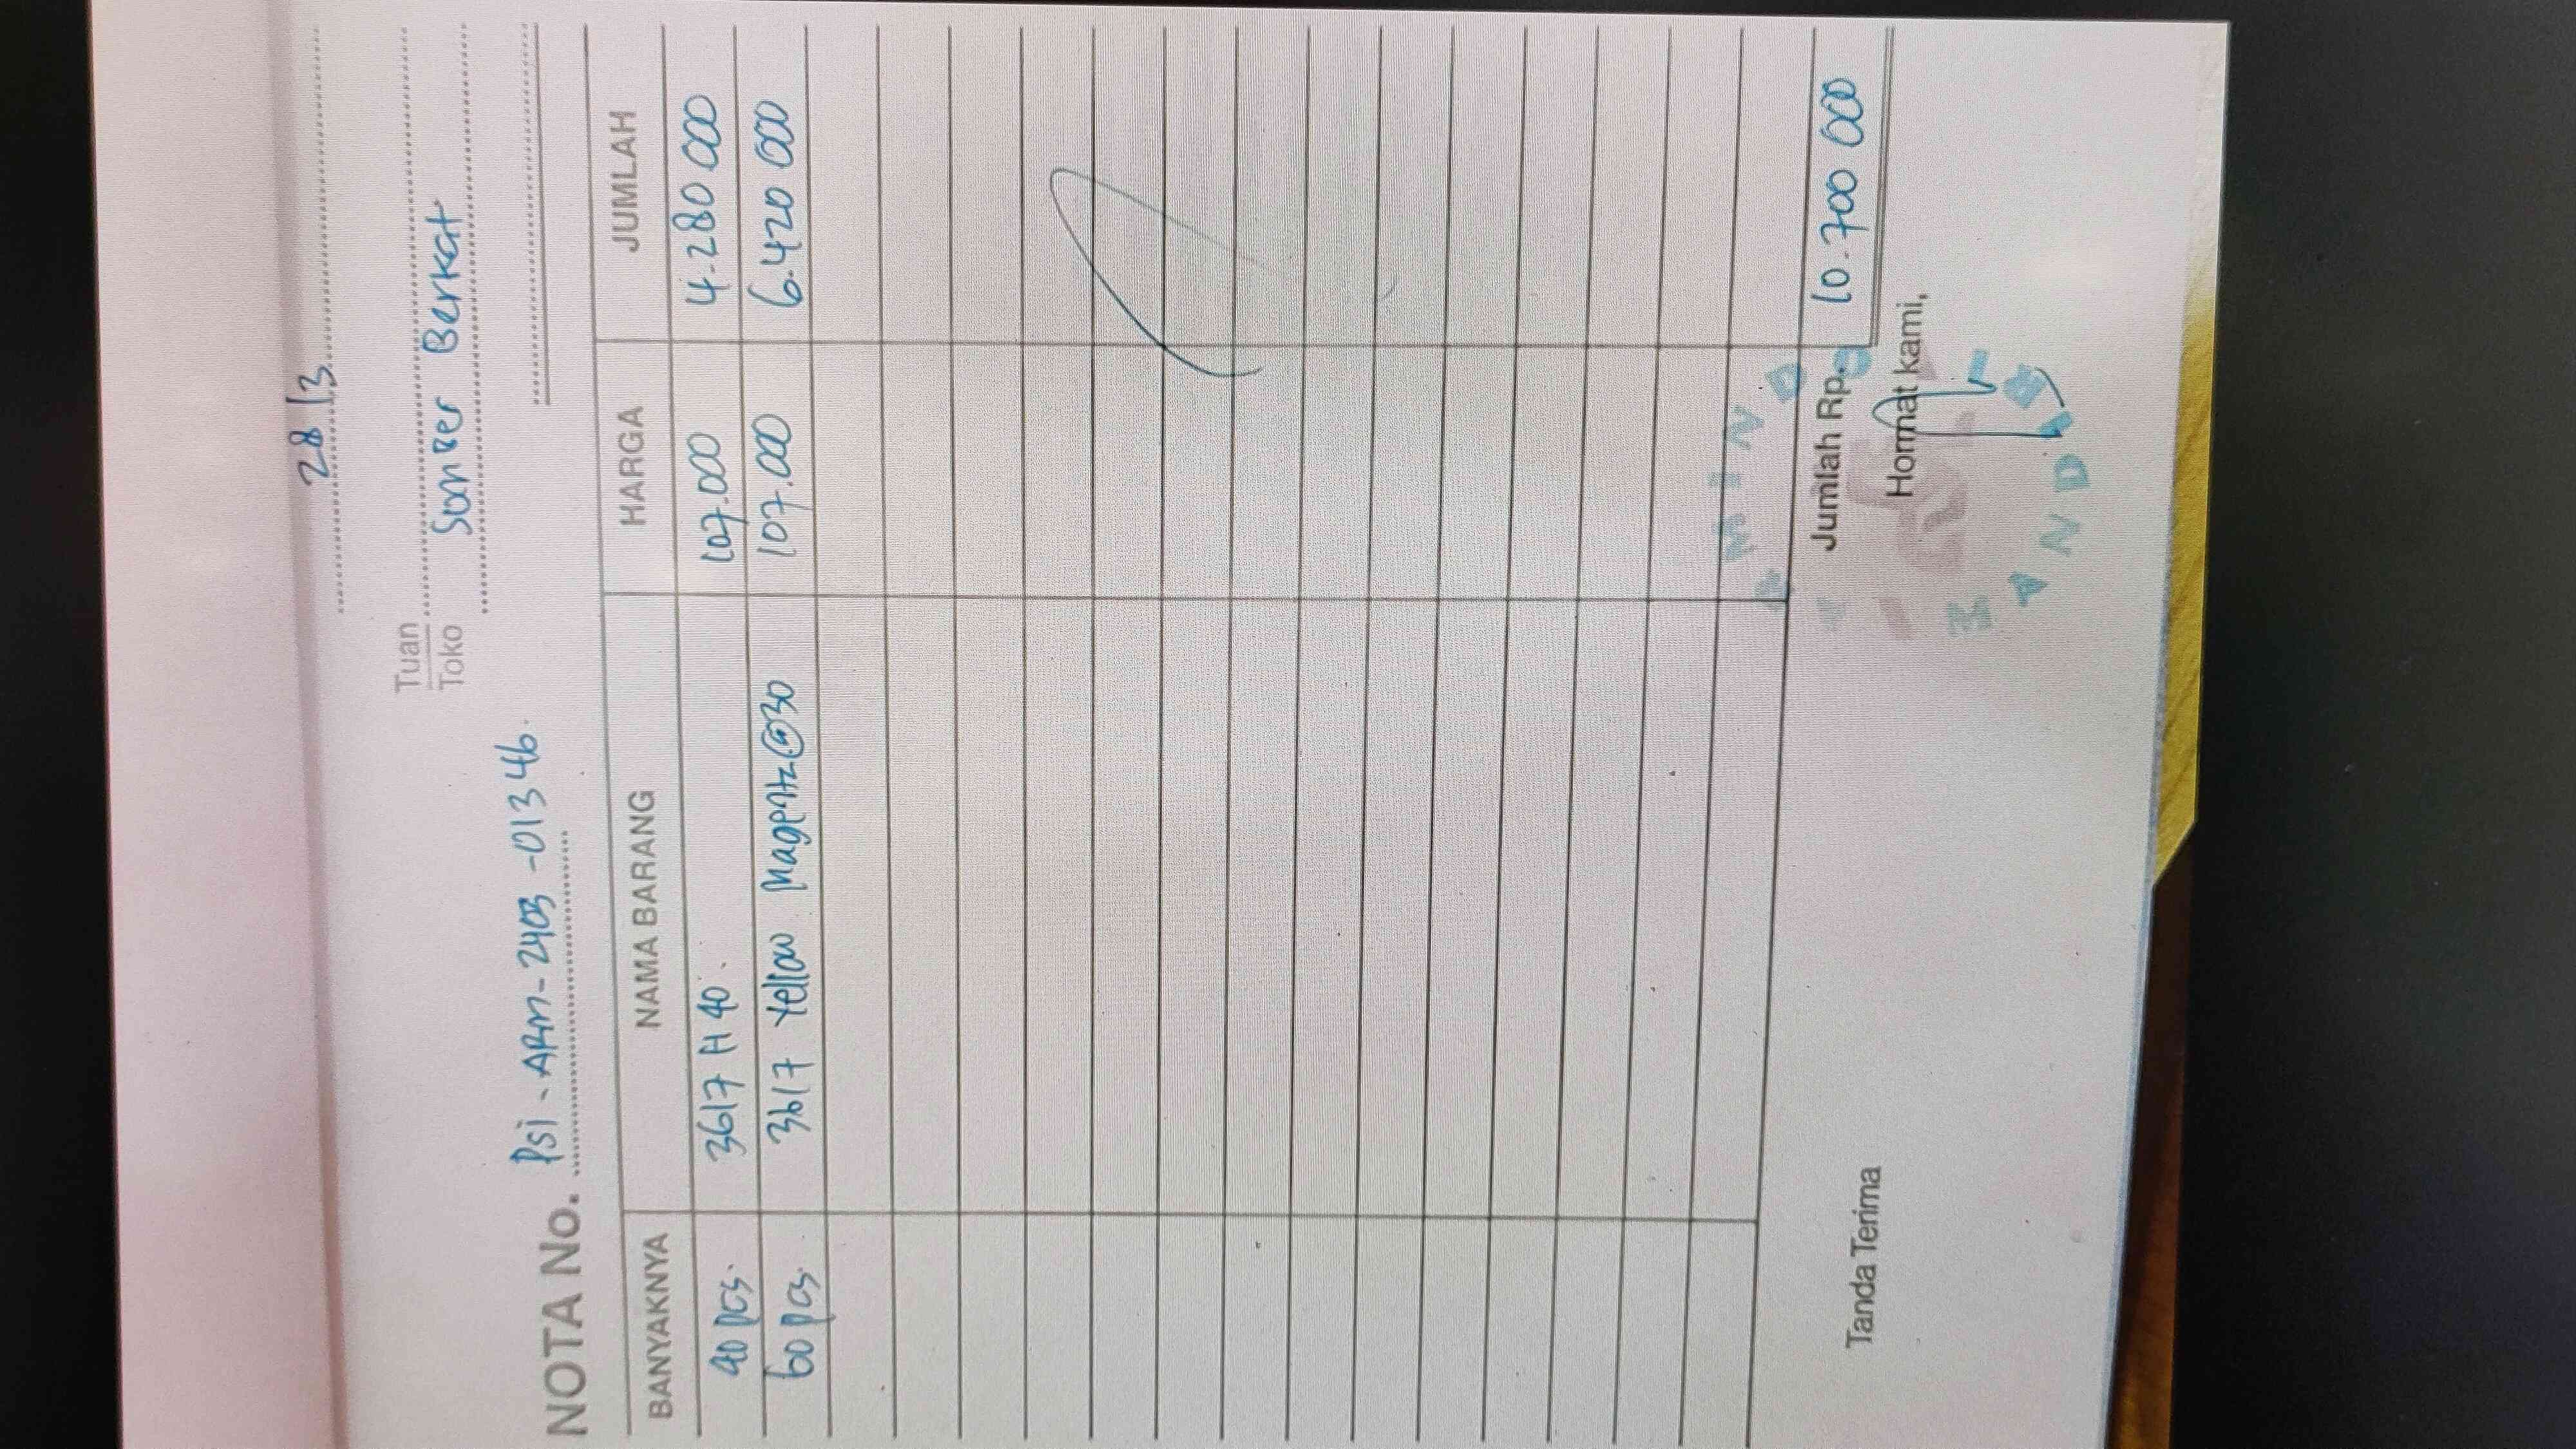 28/3
Tuan
Toko
Sumber Berkat
NOTA No. PSI-ARM-2403-01346.
BANYAKNYA NAMA BARANG HARGA JUMLAH
40 pcs. 3617 H 40. 107.000 4.280 000
60 pcs. 3617 Yellow Magenta @30 107.000 6.420 000
Jumlah Rp. 10.700 000
Tanda Terima Hormat kami,